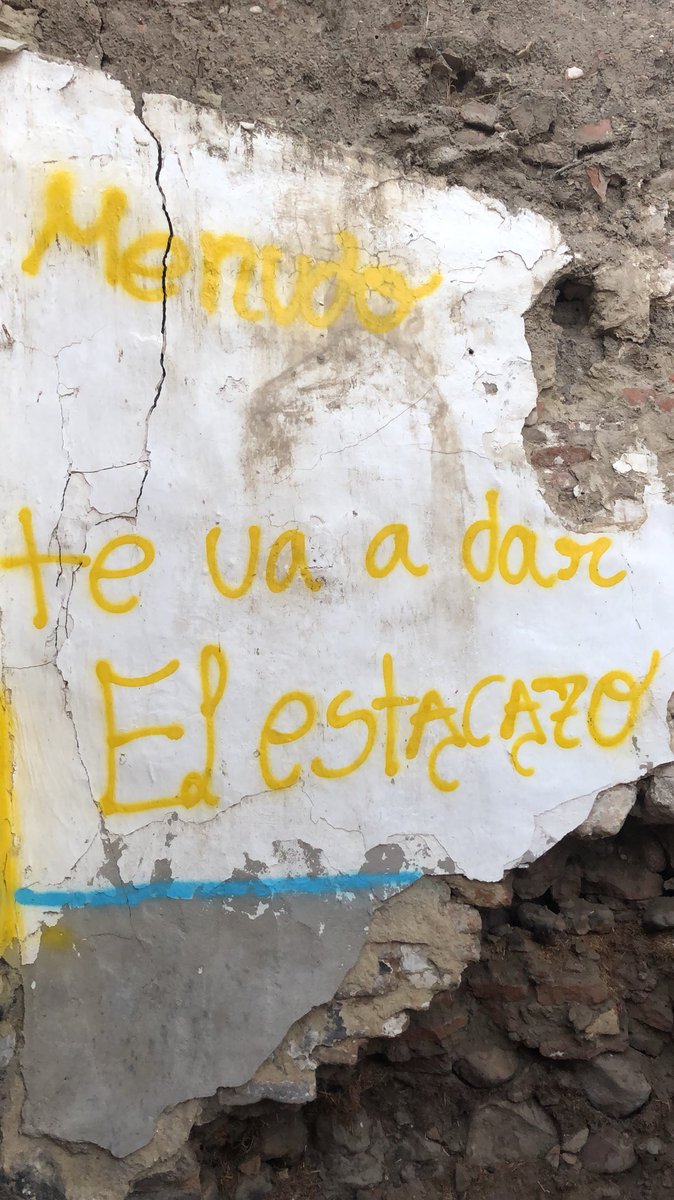 Menudo
te va a dar
El estacazo